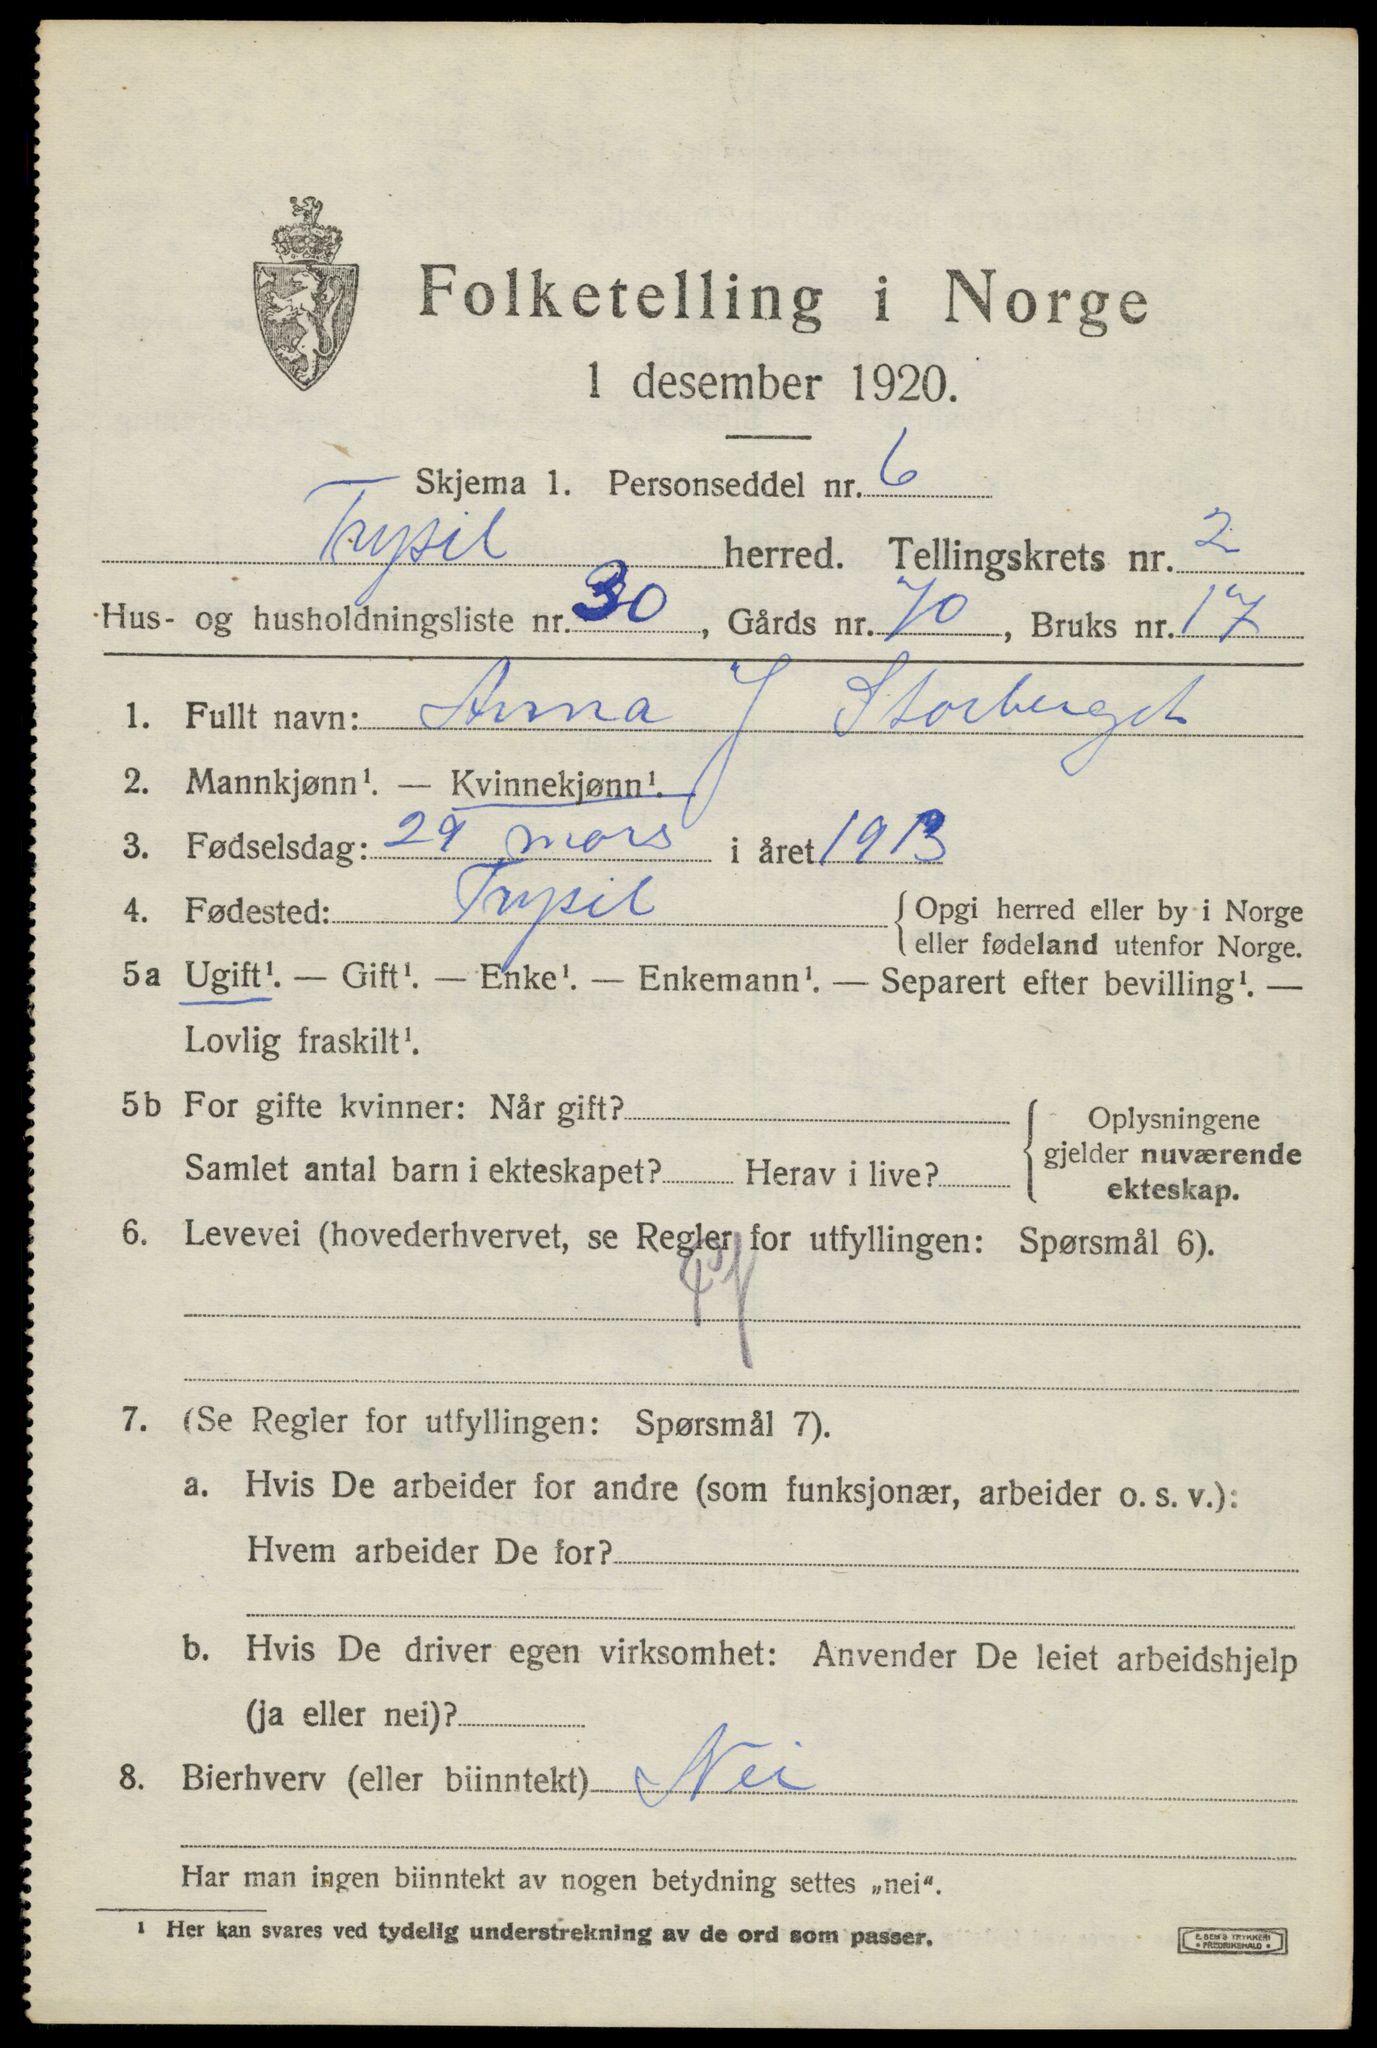 Folketelling i Norge
1 desember 1920.
Skjema 1. Personseddel nr. 6
Trysil herred. Tellingskrets nr. 2
Hus- og husholdningsliste nr. 30, Gårds nr. 70, Bruks nr. 17
1. Fullt navn: Anna J Storberget
2. Mannkjønn¹. — Kvinnekjønn¹.
3. Fødselsdag: 29 mars i året 1913
4. Fødested: Trysil {Opgi herred eller by i Norge
eller fødeland utenfor Norge.
5a Ugift¹. — Gift¹. — Enke¹. — Enkemann¹. — Separert efter bevilling¹. —
Lovlig fraskilt¹.
5b For gifte kvinner: Når gift?
Oplysningene
gjelder nuværende
ekteskap.
Samlet antal barn i ekteskapet? Herav i live?
6. Levevei (hovederhvervet, se Regler for utfyllingen: Spørsmål 6).
7. (Se Regler for utfyllingen: Spørsmål 7).
a. Hvis De arbeider for andre (som funksjonær, arbeider o. s. v.):
Hvem arbeider De for?
b. Hvis De driver egen virksomhet: Anvender De leiet arbeidshjelp
(ja eller nei)?
8. Bierhverv (eller biinntekt) Nei
Har man ingen biinntekt av nogen betydning settes „nei“.
¹ Her kan svares ved tydelig understrekning av de ord som passer.
E. SEM'S TRYKKERI
• FREDRIKSHALD •